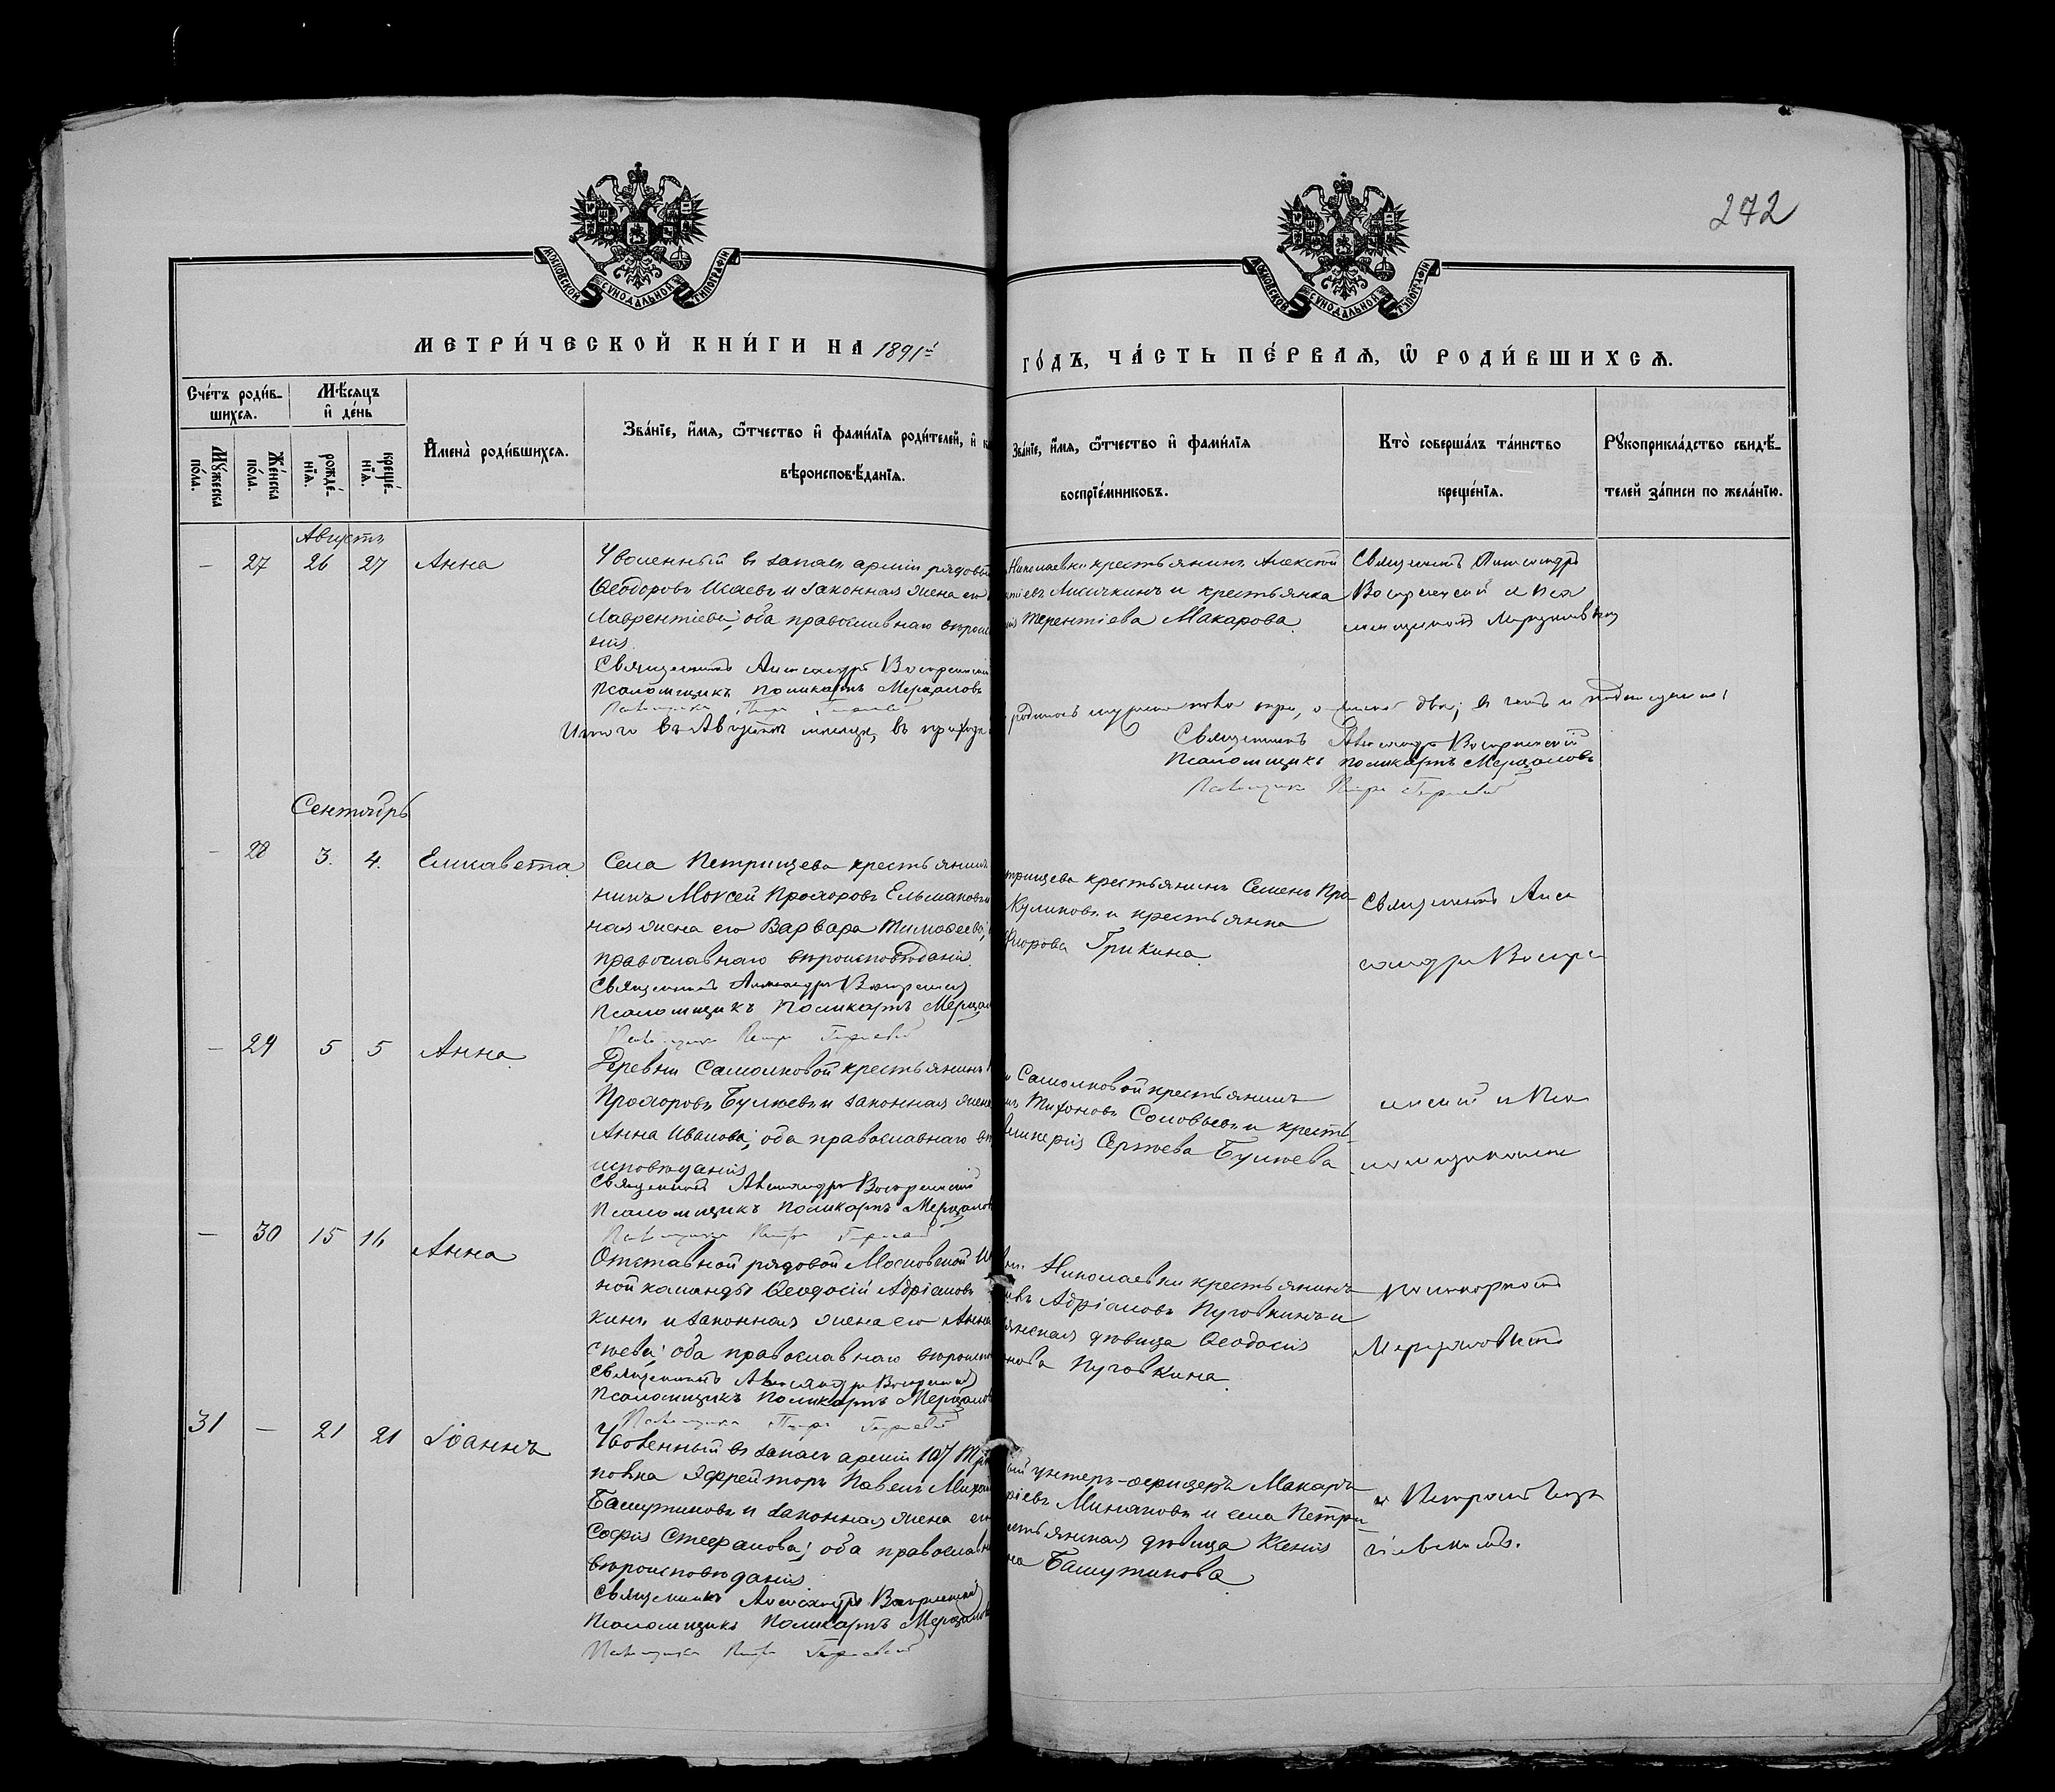 272
МОСКОВСКОЙ СѴНОДАЛЬНОЙ ТИПОГРАФІИ
МОСКОВСКОЙ СѴНОДАЛЬНОЙ ТИПОГРАФІИ
МЕТРИ́ЧЕСКОЙ КНИ́ГИ НА 1891й
ГО́ДЪ, ЧА́СТЬ ПЕ́РВАѦ, Ѡ҆ РОДИ́ВШИХСѦ.
Сче́тъ роди́в-
шихсѧ.
Мꙋ́жеска по́ла.
Же́нска по́ла.
Мѣ́сѧцъ
и҆ де́нь
рожде́нїѧ.
креще́нїѧ.
И҆мена̀ роди́вшихсѧ.
Зва́нїе, и҆́мѧ, ѻ҆́тчество и҆ фами́лїѧ роди́телей, и҆ к
вѣроисповѣ́данїѧ.
Зва́нїе, и҆́мѧ, ѻ҆́тчество и҆ фами́лїѧ
воспрїе́мниковъ.
Кто̀ соверша́лъ та́инство
креще́нїѧ.
Рꙋкоприкла́дство свидѣ́-
телей за́писи по жела́нїю.
Августъ
– 27 26 27 Анна
Уволенный въ запасъ арміи рядовы
Ѳеодоровъ Исаевъ и законная жена его
Лаврентіева; оба православнаго вѣроис
нія.
Священникъ Александръ Воскресенскій
Псаломщикъ Поликарпъ Мерцаловъ
Николаевки крестьянинъ Алексѣй
тіевъ Лисичкинъ и крестьянка
Терентіева Макарова.
Священникъ Александръ
Воскресенскій и Пса
ломщикомъ Мерцаловымъ
Итого въ Августѣ мѣсяцѣ, въ приходѣ
родилось мужеска пола три, а женска два;
Священникъ Александръ Воскресенскій
Псаломщикъ Поликарпъ Мерцаловъ
Сентябрь
– 28 3. 4. Елисавета
Села Петрищева крестьянинъ
нинъ Моѵсей Прохоровъ Ельмановъ
ная жена его Варвара Тимоѳеева;
православнаго вѣроисповѣданія.
Священникъ Александръ Воскресенскій
Псаломщикъ Поликарпъ Мерцал
трищева крестьянинъ Семенъ Про-
Куликовъ и крестьянка
Ѳлорова Грикина.
Священникъ Алек
сандръ Воскре
– 29 5 5 Анна
Деревни Самолковой крестьянинъ
Прохоровъ Булаевъ и законная жена
Анна Иванова; оба православнаго вѣ
исповѣданія
Священникъ Александръ Воскресенскій
Псаломщикъ Поликарпъ Мерцалов
Самолковой крестьянинъ
Тихоновъ Соловьевъ и кресть-
Сергѣева Булаева
сенскій и Пса
ломщикомъ
– 30 15 16 Анна
Отставной рядовой Московской
ной команды Ѳеодосій Адріановъ
кинъ и законная жена его Анна
сѣева; оба православнаго вѣроисп
Священникъ Александръ Воскресенскій
Псаломщикъ Поликарпъ Мерцалов
Николаевки крестьянинъ
Адріановъ Пуговкинъ и
янская дѣвица Ѳеодосія
нова Пуговкина.
Поликарпомъ
Мерцаловымъ
31 – 21 21 Іоаннъ
Уволенный въ запасъ арміи 107 Тро
полка Эфрейторъ Павелъ Михай
Башутиновъ и законная жена его
Софія Стефанова; оба православн
вѣроисповѣданія.
Священникъ Александръ Воскресенскій
Псаломщикъ Поликарпъ Мерцалов
ый унтеръ-офицеръ Макаръ
ріевъ Минаковъ и села Петри-
естьянская дѣвица Ксенія
на Башутинова
и Петромъ